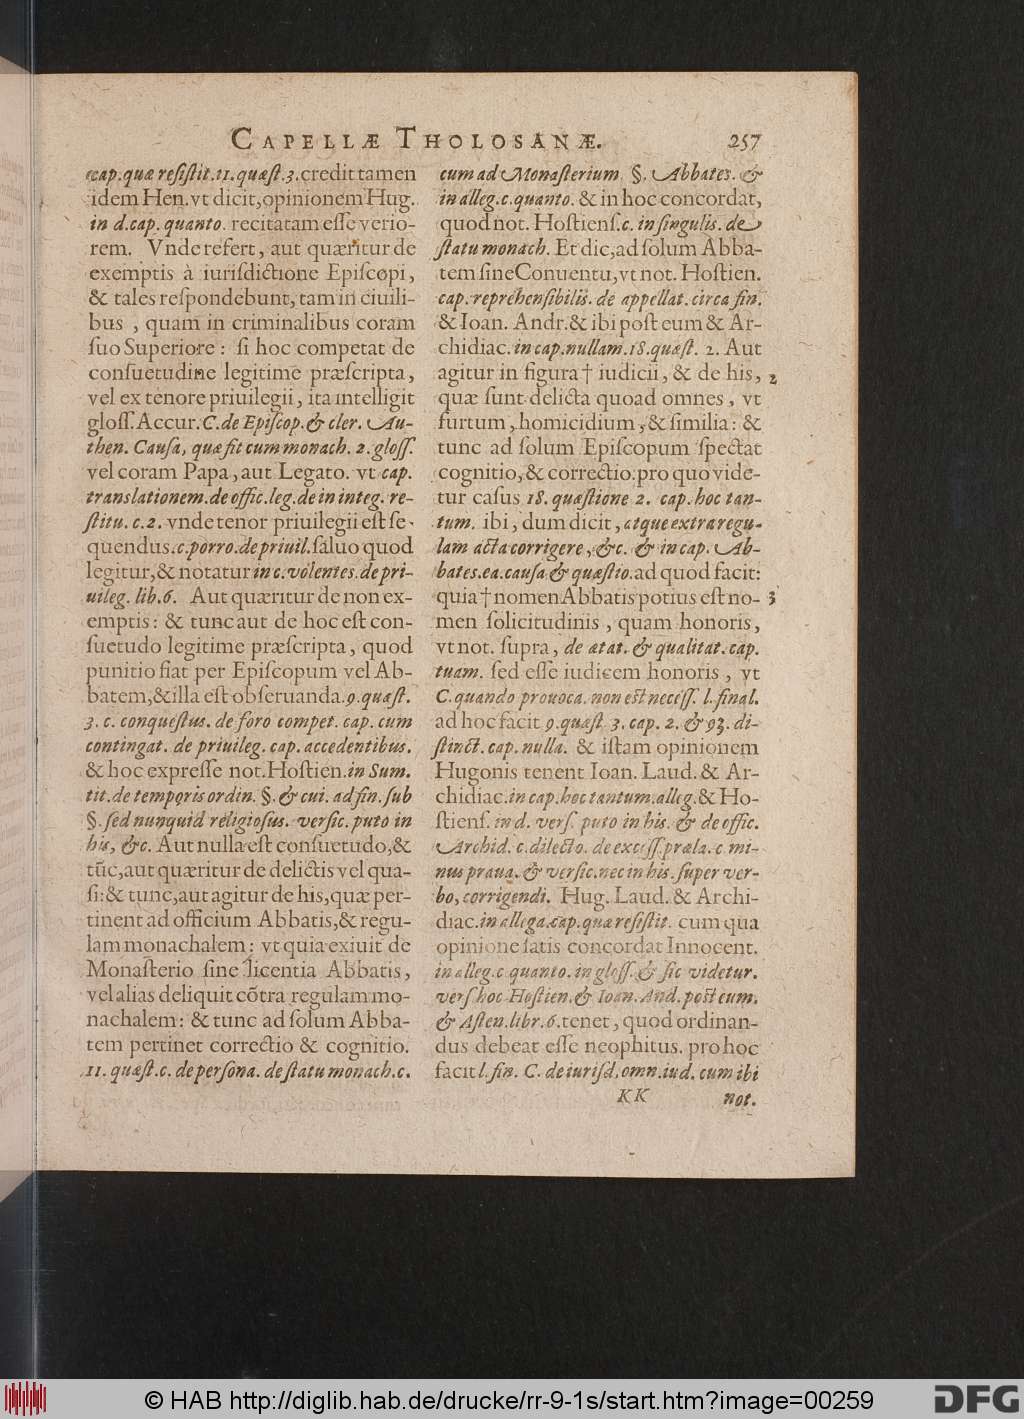 CAPELLÆ THOLOSANÆ. 257
cap.quæ reſiſtit.11.quæſt.3.credit tamen
idem Hen.vt dicit,opinionem Hug.
in d.cap. quanto. recitatam eſſe verio-
rem. Vnde refert, aut quæritur de
exemptis à iuriſdictione Epiſcopi,
& tales reſpondebunt, tam in ciuili-
bus , quam in criminalibus coram
ſuo Superiore : ſi hoc competat de
conſuetudine legitime præſcripta,
vel ex tenore priuilegii, ita intelligit
gloſſ. Accur. C. de Epiſcop. & cler. Au-
then. Cauſa, quæ fit cum monach. 2. gloſſ.
vel coram Papa, aut Legato. vt cap.
translationem.de offic.leg.de in integ. re-
ſtitu. c.2. vnde tenor priuilegii eſt ſe-
quendus.c.porro.de priuil.ſaluo quod
legitur,& notatur in c.volentes.de pri-
uileg. lib.6. Aut quæritur de non ex-
emptis: & tunc aut de hoc eſt con-
ſuetudo legitime præſcripta, quod
punitio fiat per Epiſcopum vel Ab-
batem,& illa eſt obſeruanda.9.quæſt.
3. c. conqueſtus. de foro compet. cap. cum
contingat. de priuileg. cap. accedentibus.
& hoc expreſſe not.Hoſtien.in Sum.
tit.de temporis ordin. §. & cui. ad fin. ſub
§. ſed nunquid religioſus. verſic. puto in
his, &c. Aut nulla eſt conſuetudo,&
tūc,aut quæritur de delictis vel qua-
ſi: & tunc,aut agitur de his,quæ per-
tinent ad officium Abbatis,& regu-
lam monachalem: vt quia exiuit de
Monaſterio ſine licentia Abbatis,
vel alias deliquit cõtra regulam mo-
nachalem: & tunc ad ſolum Abba-
tem pertinet correctio & cognitio.
11. quæſt.c. de perſona. de ſtatu monach.c.
cum ad Monaſterium. §. Abbates. &
in alleg.c.quanto. & in hoc concordat,
quod not. Hoſtienſ.c. in ſingulis. de
ſtatu monach. Et dic,ad ſolum Abba-
tem ſine Conuentu,vt not. Hoſtien.
cap. reprehenſibilis. de appellat. circa fin.
& Ioan. Andr.& ibi poſt eum & Ar-
chidiac. in cap. nullam.18.quæſt. 2. Aut
agitur in figura † iudicii, & de his, 2
quæ ſunt delicta quoad omnes , vt
furtum , homicidium ,& ſimilia: &
tunc ad ſolum Epiſcopum ſpectat
cognitio,& correctio: pro quo vide-
tur caſus 18. quæſtione 2. cap. hoc tan-
tum. ibi , dum dicit , atque extra regu-
lam acta corrigere ,&c. & in cap. Ab-
bates.ea.cauſa & quæſtio.ad quod facit:
quia † nomen Abbatis potius eſt no- 3
men ſolicitudinis , quam honoris,
vt not. ſupra, de ætat. & qualitat. cap.
tuam. ſed eſſe iudicem honoris , vt
C. quando prouoca. non eſt neceſſ. l. final.
ad hoc facit 9.quæſt. 3. cap. 2. & 93. di-
ſtinct. cap. nulla. & iſtam opinionem
Hugonis tenent Ioan. Laud. & Ar-
chidiac. in cap. hoc tantum.alleg.& Ho-
ſtienſ. in d. verſ. puto in his. & de offic.
Archid. c. dilecto. de exceſſ. præla. c. mi-
nus praua. & verſic. nec in his. ſuper ver-
bo, corrigendi. Hug. Laud. & Archi-
diac. in allega.cap.quæ reſiſtit. cum qua
opinione ſatis concordat Innocent.
in alleg.c. quanto. in gloſſ. & ſic videtur.
verſ hoc Hoſtien.& Ioan. And. poſt eum.
& Aſten.libr.6.tenet, quod ordinan-
dus debeat eſſe neophitus. pro hoc
facit l. fin. C. de iuriſd. omn. iud. cum ibi
KK not.
© HAB http://diglib.hab.de/drucke/rr-9-1s/start.htm?image=00259
DFG